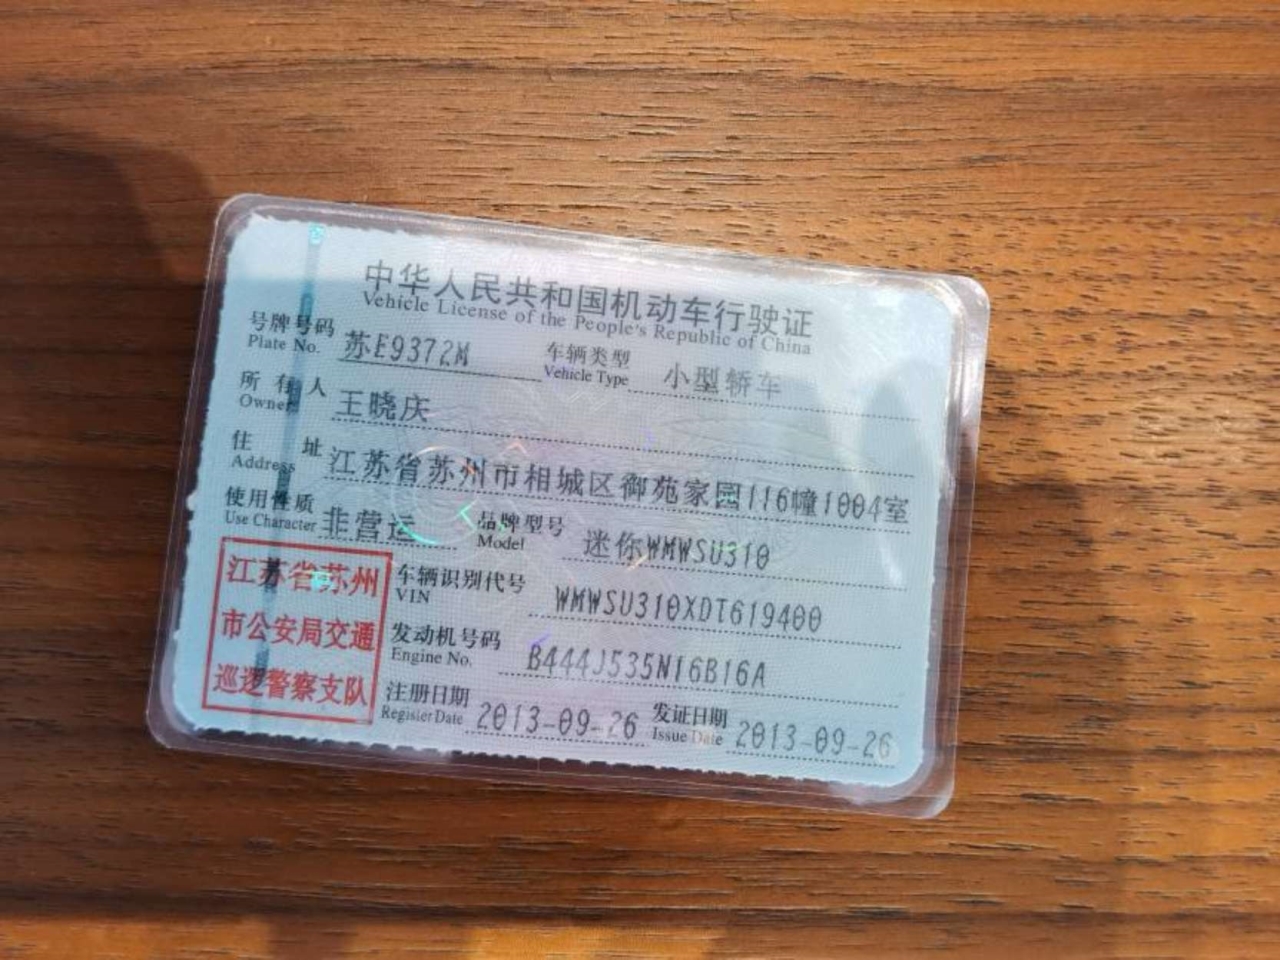 中华人民共和国机动车行驶证
Vehicle License of the People's Republic of China
号牌号码 苏E9372M 车辆类型 小型轿车
Plate No. Vehicle Type
所有人 王晓庆
Owner
住址 江苏省苏州市相城区御苑家园116幢1004室
Address
使用性质 非营运 品牌型号 迷你WMWSU310
Use Character Model
江苏省苏州
市公安局交通
巡逻警察支队
车辆识别代号 WMWSU310XDT619400
VIN
发动机号码 B444J535N16B16A
Engine No.
注册日期 2013-09-26 发证日期 2013-09-26
Register Date Issue Date